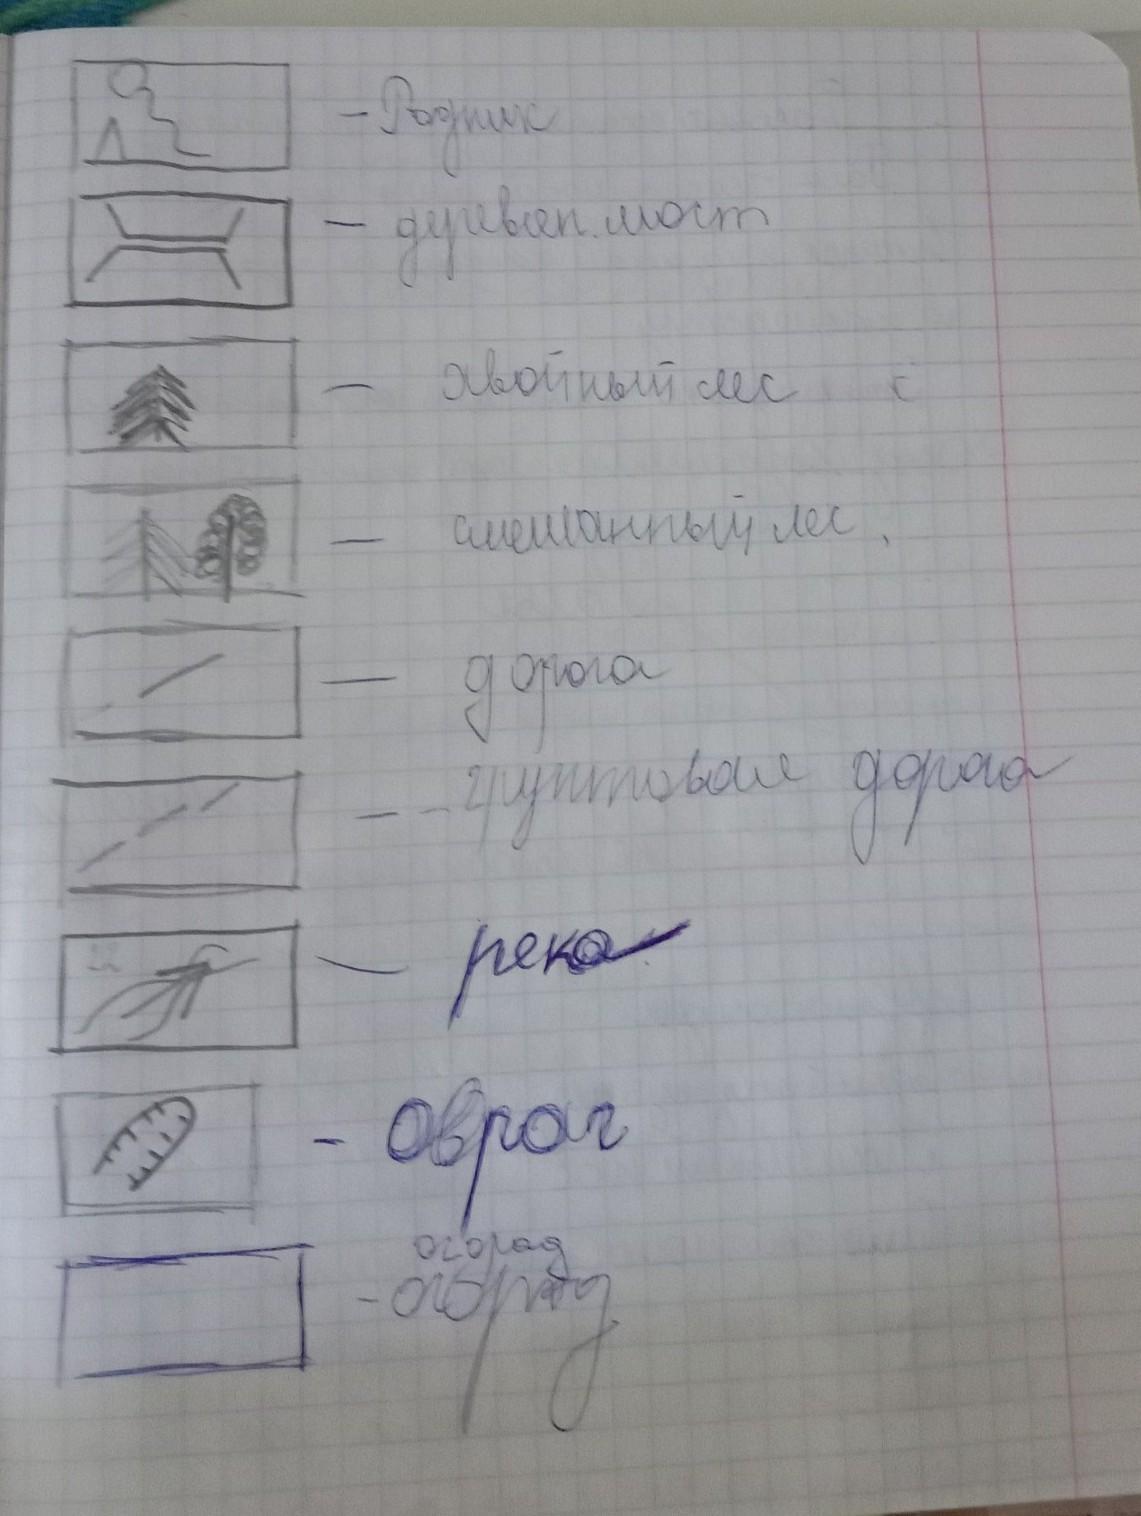 - Родник
- деревян. мост
- хвойный лес
- смешанный лес.
- дорога
- - грунтовая дорога
- река
- овраг
огорад
- огород